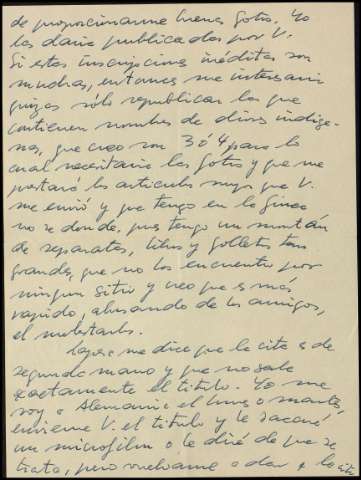 de proporcionarme buenas fotos. Yo
las daria publicadas por V.
Si estas inscripciones inéditas son
muchas, entonces me interesaria
quizas sólo republicar las que
contienen nombres de dioses indige-
nas, que creo son 3 ó 4 para lo
cual necesitaria las fotos y que me
prestará los articulos suyos que V.
me envió y que tengo en la finca
no se donde, pues tengo un montón
de separatas, libros y folletos tan
grande, que no los encuentro por
ningun sitio y creo que es más
rapido, abusando de los amigos,
el molestarlos.
me dice que la cita es de
segunda mano y que no sabe
exactamente el titulo. Yo me
voy a Alemania el lunes o martes,
envieme V. el titulo y le sacaré
un microfilm o le diré de que se
trata, pero vuelvame a dar la cita